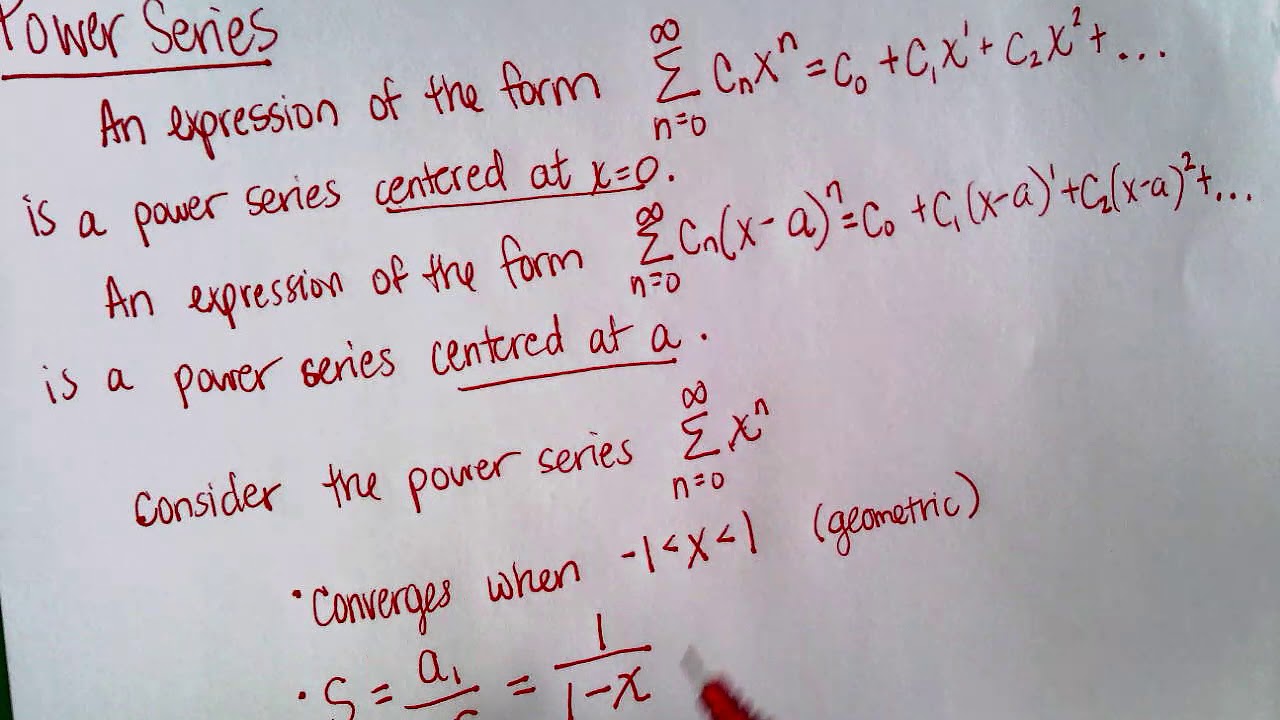 Power Series
An expression of the form ∞ Σ n=0 Cₙxⁿ = C₀ + C₁x¹ + C₂x² + ...
is a power series centered at x=0.
An expression of the form ∞ Σ n=0 Cₙ(x-a)ⁿ = C₀ + C₁(x-a)¹ + C₂(x-a)² + ...
is a power series centered at a.
Consider the power series ∞ Σ n=0 xⁿ
• Converges when -1<x<1 (geometric)
• S = a₁/ = 1/1-x